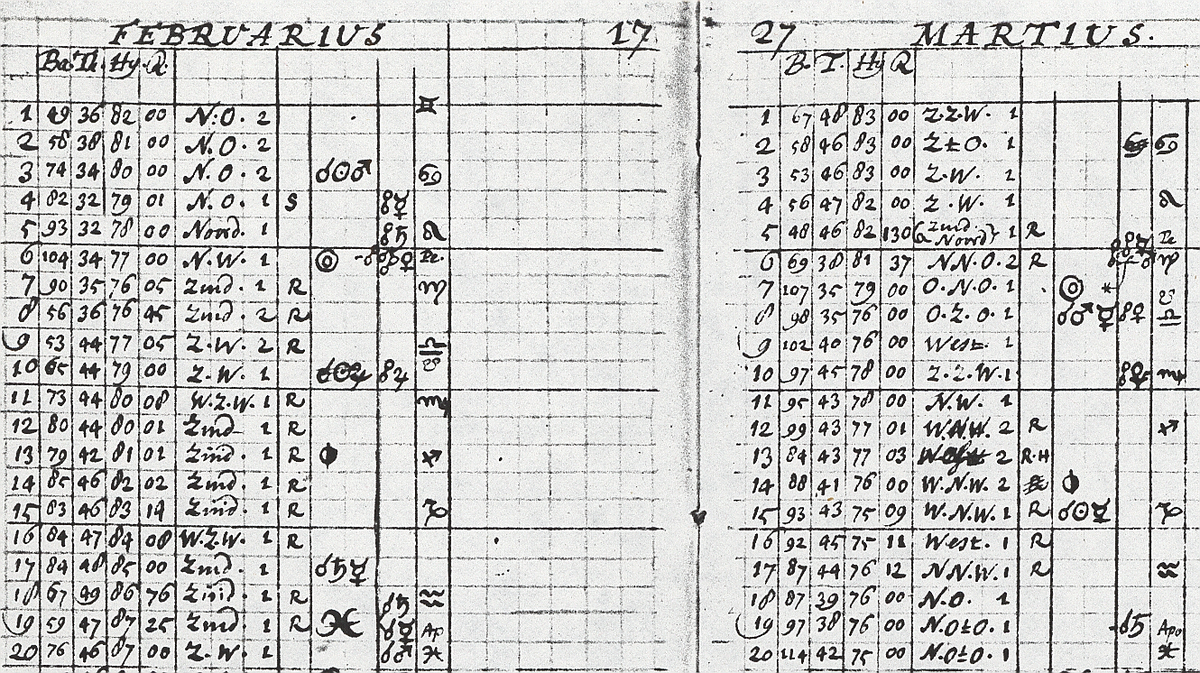 FEBRUARIUS 17
Ba. Th. Hy. Q.
1 49 36 82 00 N.O. 2 ♊
2 58 38 81 00 N.O. 2
3 74 34 80 00 N.O. 2 ☌☉♂ ♋
4 82 32 79 01 N.O. 1 S ☍☿
5 93 32 78 00 Noord. 1 ☍♄ ♌
6 104 34 77 00 N.W. 1 Pe.
7 90 35 76 05 Zuid. 1 R ♍
8 56 36 76 45 Zuid. 2 R
9 53 44 77 05 Z.W. 2 R ♎
10 65 44 79 00 Z.W. 1 ☍♃
11 73 44 80 08 W.Z.W. 1 R ♏
12 80 44 80 01 Zuid 1 R
13 79 42 81 01 Zuid. 1 R ♐
14 85 46 82 02 Zuid. 1 R
15 83 46 83 14 Zuid. 1 R ♑
16 84 47 84 08 W.Z.W. 1 R
17 84 48 85 00 Zuid. 1 ☌♄☿
18 67 49 86 76 Zuid. 1 R ☌♄ ♒
19 59 47 87 25 Zuid. 1 R ☌☿ Ap
20 76 46 87 00 Z.W. 1 ☌♂ ♓
27 MARTIUS.
B. T. Hy Q
1 67 48 83 00 Z.Z.W. 1
2 58 46 83 00 Z±O. 1 ♋
3 53 46 83 00 Z.W. 1
4 56 47 82 00 Z.W. 1 ♌
5 48 46 82 130 Zuid Noord 1 R Pe
6 69 38 81 37 NN.O. 2 R ♍
7 107 35 79 00 O.N.O. 1
8 98 35 76 00 O.Z.O. 1 ☌♂☿ ☍♀ ♎
9 102 40 76 00 West. 1
10 97 45 78 00 Z.Z.W. 1 ♏
11 95 43 78 00 N.W. 1
12 99 43 77 01 W.N.W. 2 R ♐
13 84 43 77 03 2 R.H
14 88 41 76 00 W.N.W. 2
15 93 43 75 09 W.N.W. 1 R ☌☉☿ ♑
16 92 45 75 11 West. 1 R
17 87 44 76 12 NN.W. 1 R ♒
18 87 39 76 00 N.O. 1
19 97 38 76 00 N.O±O. 1 ☌♄ Apo
20 114 42 75 00 N.O±O. 1 ♓